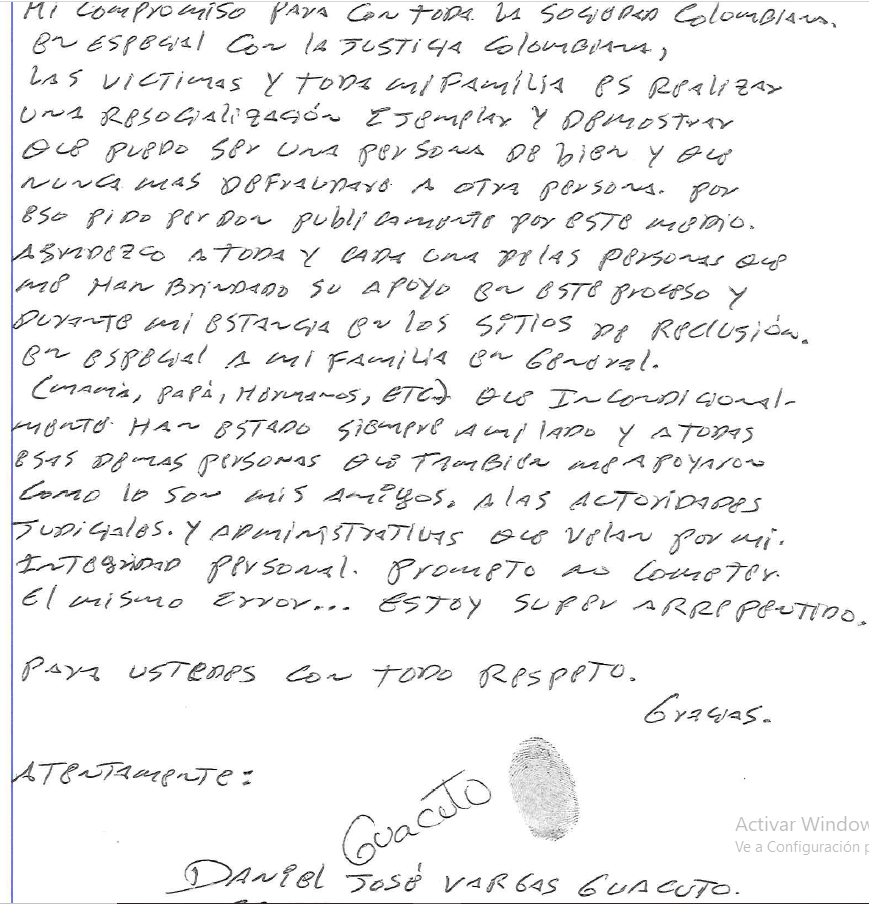 Mi compromiso para con toda la sociedad colombiana.
en especial con la justicia colombiana,
las victimas y toda mi familia es realizar
una resocialización ejemplar y demostrar
que puedo ser una persona de bien y que
nunca mas defraudare a otra persona. por
eso pido perdon publicamente por este medio.
Agradezco a toda y cada una de las personas que
me han brindado su apoyo en este proceso y
durante mi estancia en los sitios de reclusión.
en especial a mi familia en general.
(mamá, papá, hermanos, ETC) que incondicional-
mente han estado siempre a mi lado y a todas
esas demas personas que también me apoyaron
como lo son mis amigos. a las autoridades
judiciales. y administrativas que velan por mi.
integridad personal. prometo no cometer.
el mismo error... estoy super arrepentido.
para ustedes con todo respeto.
Gracias.
Atentamente:
Guacuto
Daniel José Vargas Guacuto.
Activar Window
Ve a Configuración p